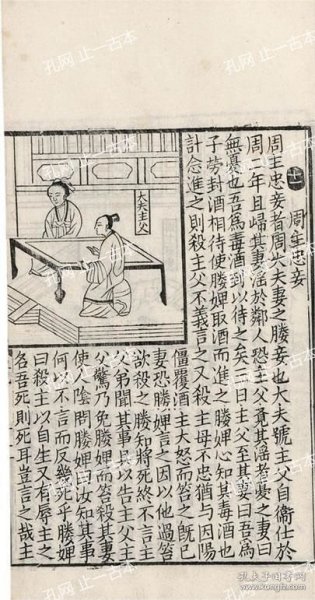 孔网 止一古本
十一 周主忠妾
周主忠妾者周大夫妻之媵妾也大夫號主父自衛仕於
周二年且歸其妻淫於鄰人恐主父覺其淫者憂之妻曰
無憂也吾為毒酒封以待之矣三日主父至其妻曰吾為
子勞封酒相待使媵婢取酒而進之媵婢心知其毒酒也
計念進之則殺主父不義言之又殺主母不忠猶與因陽
大夫主父
僵覆酒主大怒而笞之既已
妻恐媵婢言之因以他過笞
欲殺之媵知將死終不言主
父弟聞其事具以告主父主
父驚乃免媵婢而笞殺其妻
使人陰問媵婢曰汝知其事
何以不言而反幾死乎媵婢
曰殺主以自生又有辱主之
名吾死則死耳豈言之哉主
孔夫子旧书网